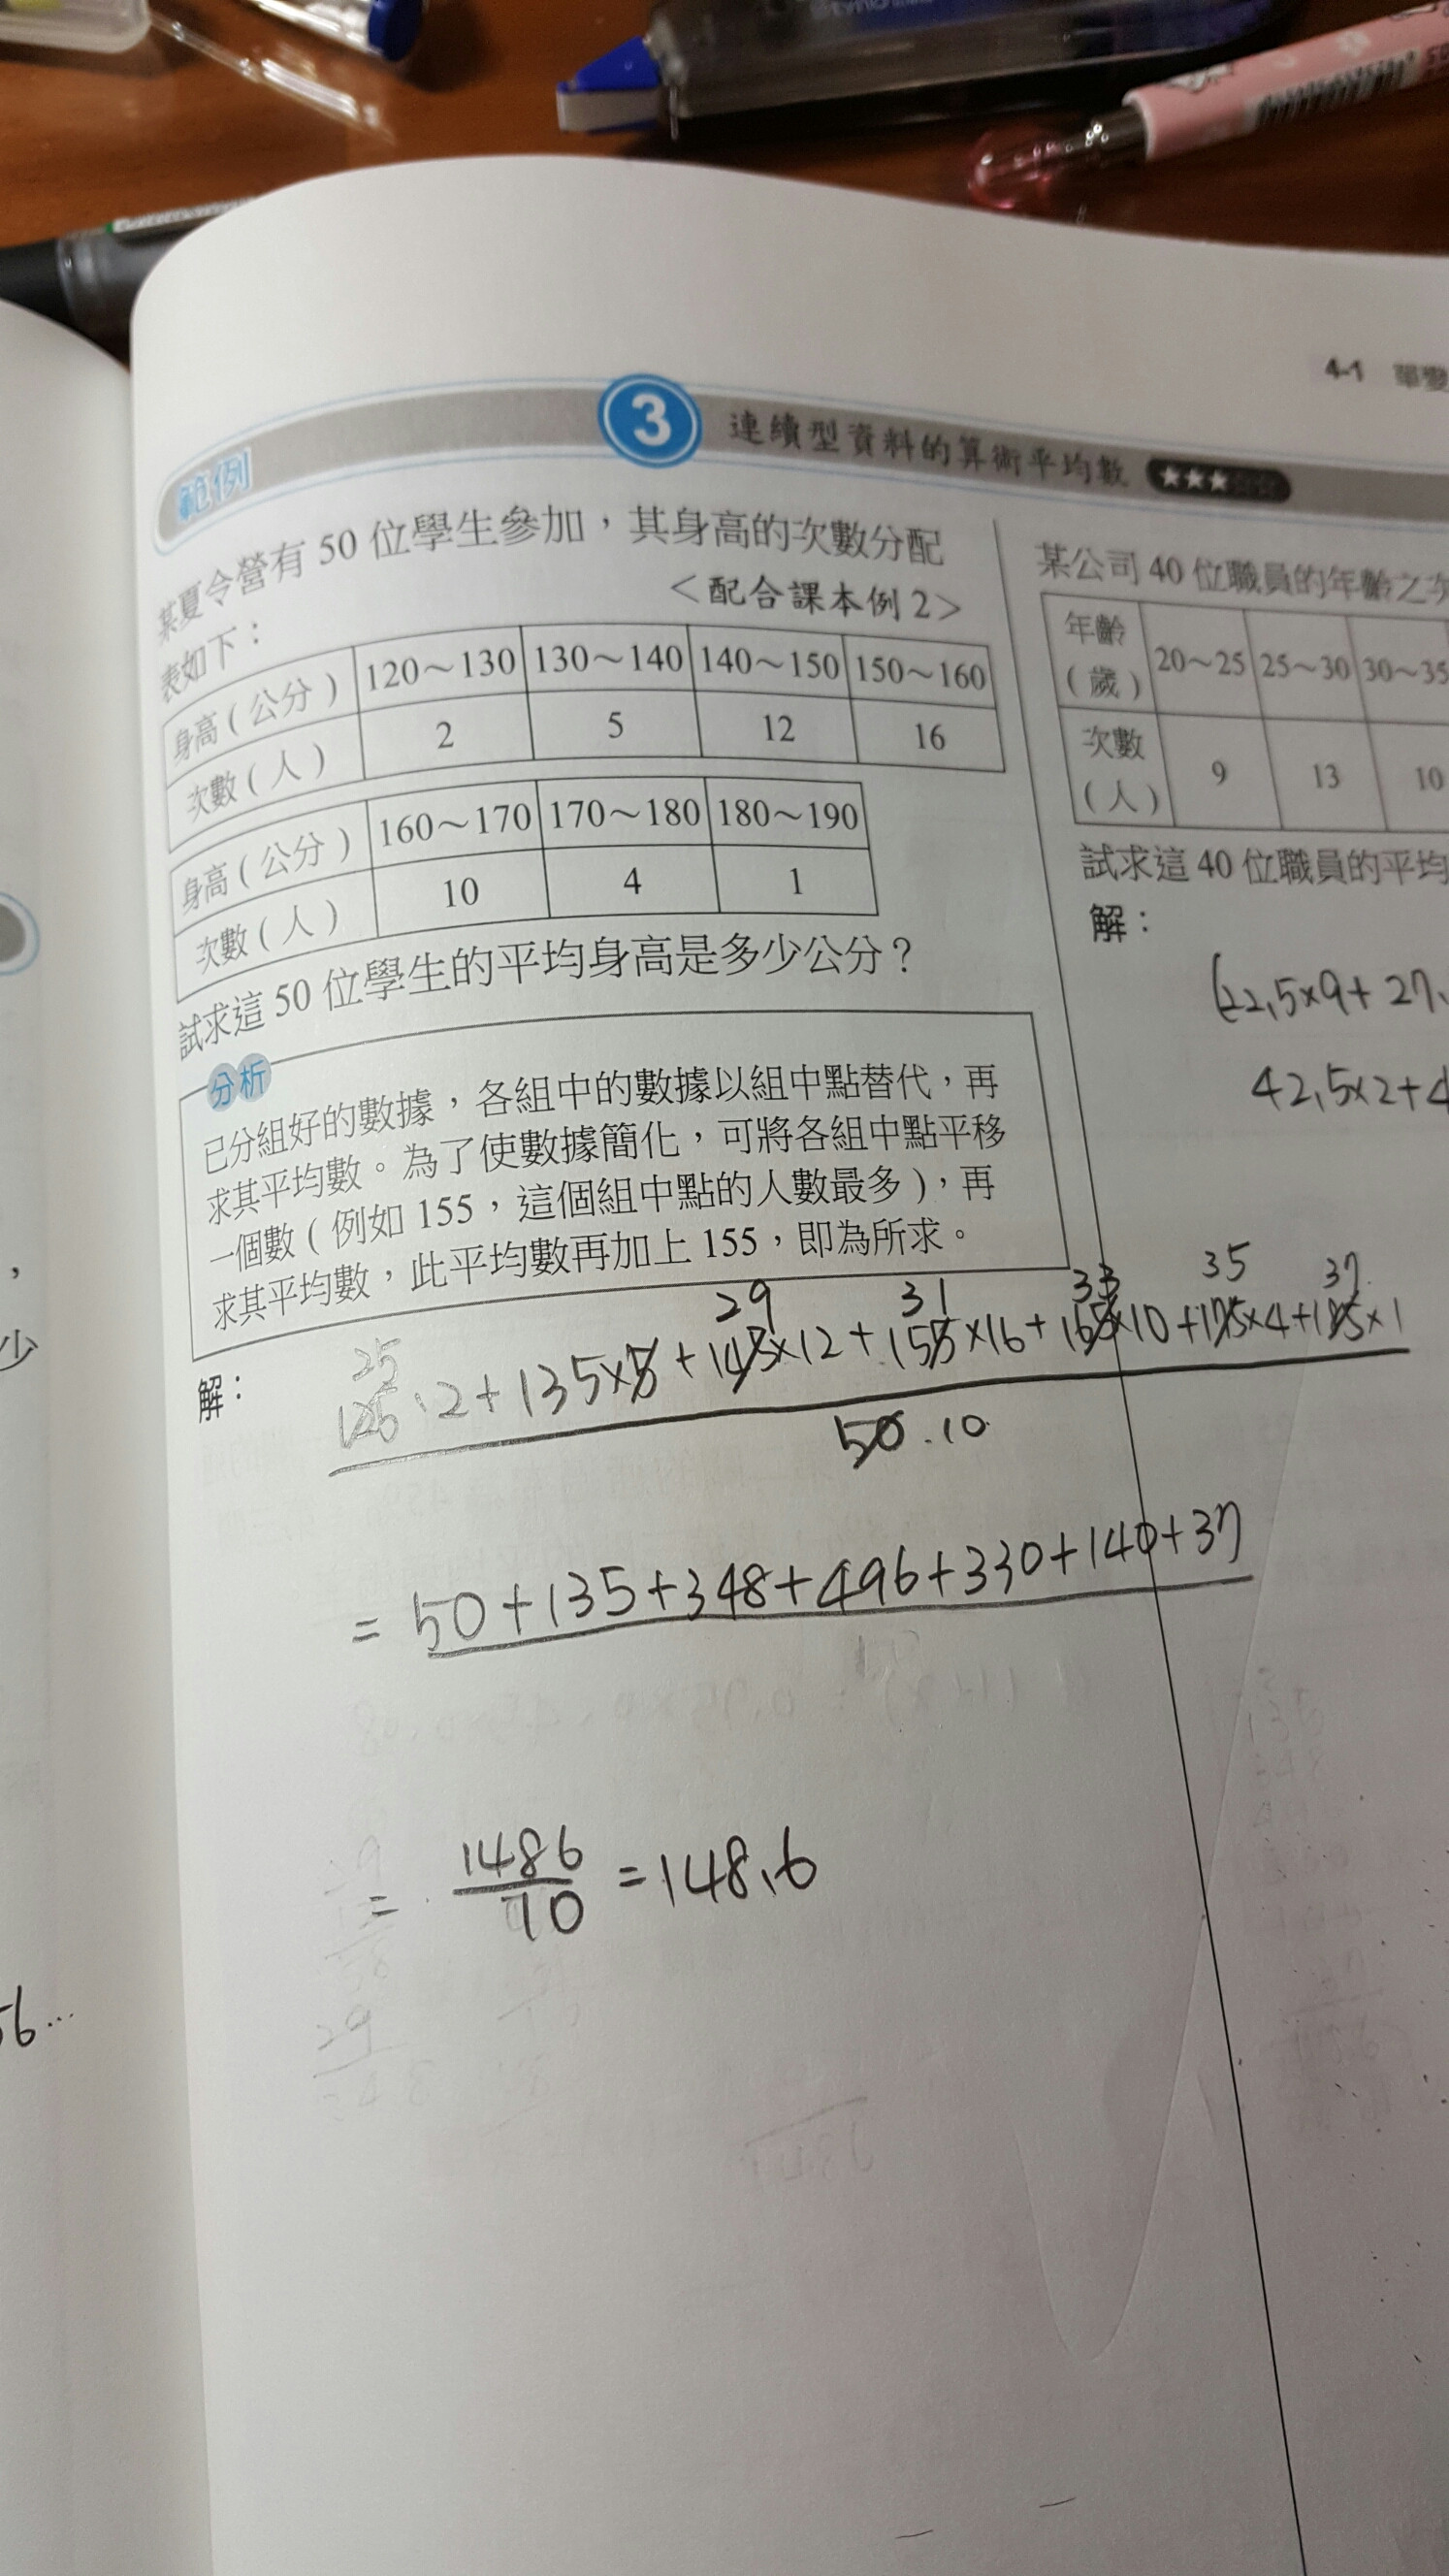 4-1 單變
範例 3 連續型資料的算術平均數 ★★★☆☆
某夏令營有 50 位學生參加，其身高的次數分配
表如下： <配合課本例 2>
身高(公分) 120～130 130～140 140～150 150～160
次數(人) 2 5 12 16
身高(公分) 160～170 170～180 180～190
次數(人) 10 4 1
試求這 50 位學生的平均身高是多少公分？
分析
已分組好的數據，各組中的數據以組中點替代，再
求其平均數。為了使數據簡化，可將各組中點平移
一個數(例如 155，這個組中點的人數最多)，再
求其平均數，此平均數再加上 155，即為所求。
解：
25 29 31 33 35 37
125·2+135×5+145×12+155×16+165×10+175×4+185×1
50.10
=50+135+348+496+330+140+37
= 1486
10
=148.6
某公司 40 位職員的年齡之次
年齡(歲) 20～25 25～30 30～35
次數(人) 9 13 10
試求這 40 位職員的平均
解：
(22.5×9+27.
42.5×2+4
，
少
56…